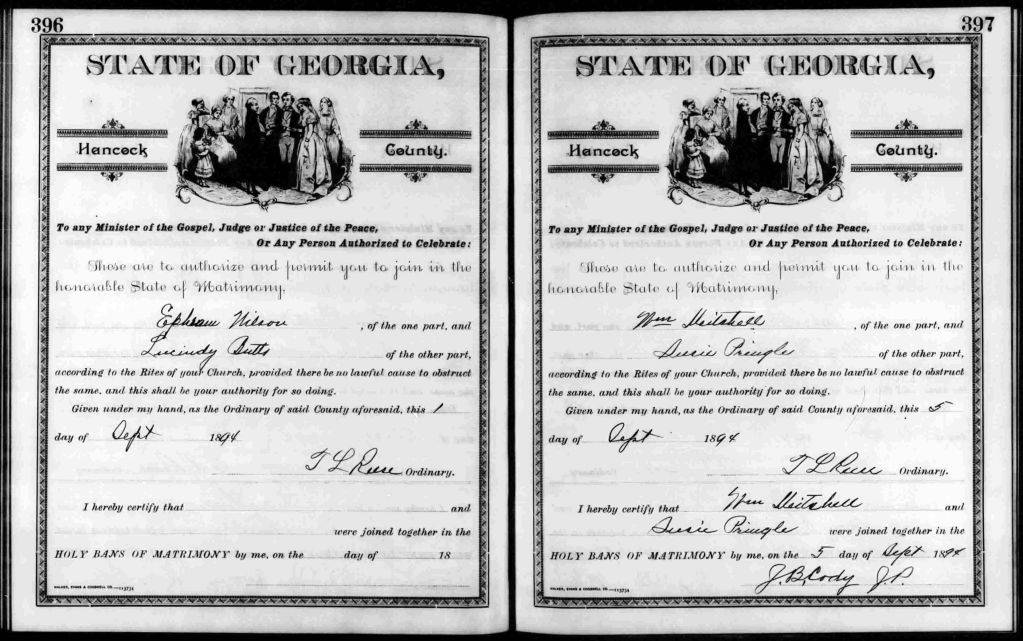 396
STATE OF GEORGIA,
Hancock County.
To any Minister of the Gospel, Judge or Justice of the Peace,
Or Any Person Authorized to Celebrate:
These are to authorize and permit you to join in the
honorable State of Matrimony,
Ephraim Wilson , of the one part, and
Lucindy Butts of the other part,
according to the Rites of your Church, provided there be no lawful cause to obstruct
the same, and this shall be your authority for so doing.
Given under my hand, as the Ordinary of said County aforesaid, this 1
day of Sept 1894
T L Reese Ordinary.
I hereby certify that and
were joined together in the
HOLY BANS OF MATRIMONY by me, on the day of 18
WALKER, EVANS & COGSWELL CO.—113734
397
STATE OF GEORGIA,
Hancock County.
To any Minister of the Gospel, Judge or Justice of the Peace,
Or Any Person Authorized to Celebrate:
These are to authorize and permit you to join in the
honorable State of Matrimony,
Wm , of the one part, and
Susie Pringle of the other part,
according to the Rites of your Church, provided there be no lawful cause to obstruct
the same, and this shall be your authority for so doing.
Given under my hand, as the Ordinary of said County aforesaid, this 5
day of Sept 1894
T L Reese Ordinary.
I hereby certify that Wm and
Susie Pringle were joined together in the
HOLY BANS OF MATRIMONY by me, on the 5 day of Sept 1894
J. B. Cody J. P.
WALKER, EVANS & COGSWELL CO.—113734